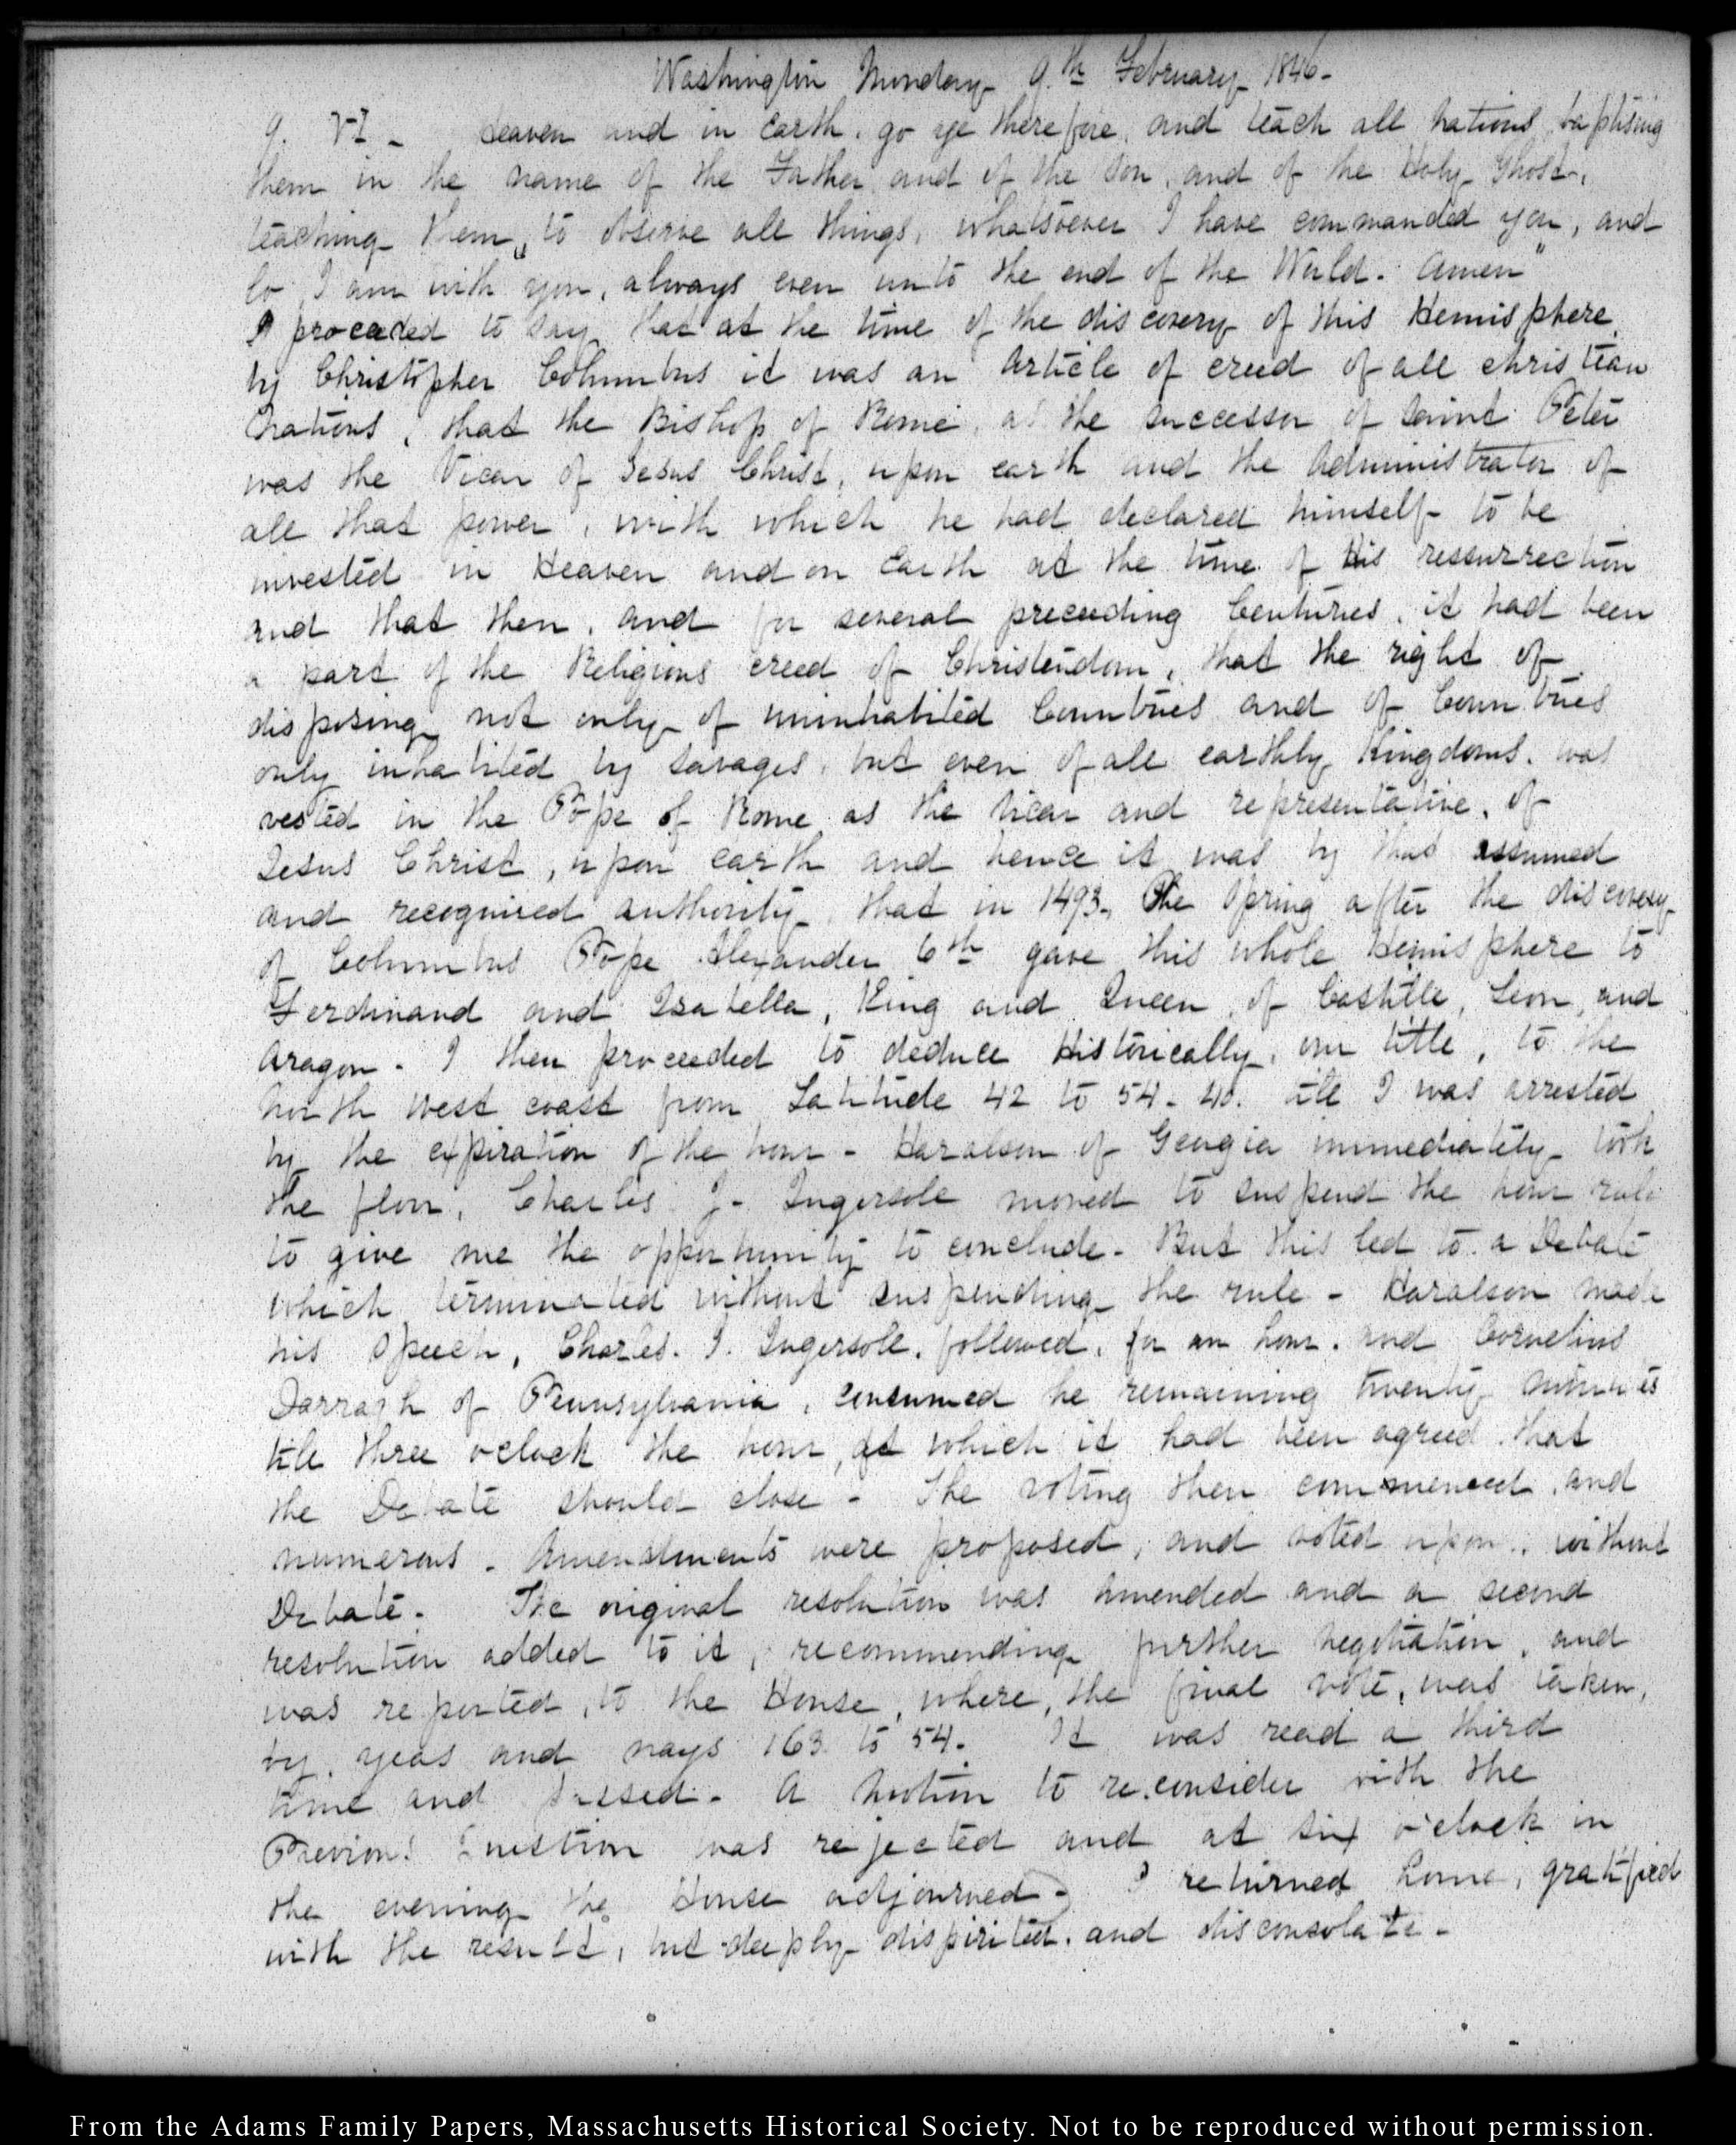 Washington Monday 9.th February 1846-
9. VI - Heaven and in Earth. go ye therefore, and teach all nations, baptising
them in the name of the Father, and of the Son, and of the Holy Ghost,
teaching them, to observe all things, whatsoever I have commanded you, and
lo, I am with you, always even unto the end of the World. Amen"
I proceeded to say that at the time of the discovery of this Hemisphere
by Christopher Columbus it was an article of creed of all christian
Nations, that the Bishop of Rome, as the successor of Saint Peter
was the Vicar of Jesus Christ, upon earth and the Administrator of
all that power, with which he had declared himself to be
invested in Heaven and on Earth at the time of his ressurrection
and that then, and for several preceeding Centuries, it had been
a part of the Religious creed of Christendom, that the right of
disposing not only of uninhabited Countries and of Countries
only inhabited by Savages, but even of all earthly Kingdoms, was
vested in the Pope of Rome as the vicar and representative, of
Jesus Christ, upon earth and hence it was by this assumed
and recognised authority, that in 1493, the Spring after the discovery
of Columbus Pope Alexander 6th gave this whole Hemisphere to
Ferdinand and Isabella, King and Queen, of Castille, Leon, and
Aragon. I then proceeded to deduce Historically, our title, to the
North West coast from Latitude 42 to 54-40. till I was arrested
by the expiration of the hour - Haralson of Georgia immediately took
the floor, Charles J. Ingersoll moved to suspend the hour rule
to give me the opportunity to conclude. But this led to a Debate
which terminated without suspending the rule - Haralson made
his Speech, Charles. J. Ingersoll, followed, for an hour. and Cornelius
Darragh of Pennsylvania, consumed the remaining twenty minutes
till three oclock the hour, at which it had been agreed that
the Debate should close - The voting then commenced, and
numerous - Amendments were proposed, and voted upon, without
Debate. The original resolution was amended and a second
resolution added to it, recommending further negotiation, and
was reported, to the House, where, the final vote, was taken,
by, yeas and nays 163 to 54. It was read a third
time and passed. A motion to reconsider with the
Previous Question was rejected and at six o'clock in
the evening the House adjourned - I returned home, gratified
with the result, but deeply dispirited, and disconsolate -
From the Adams Family Papers, Massachusetts Historical Society. Not to be reproduced without permission.